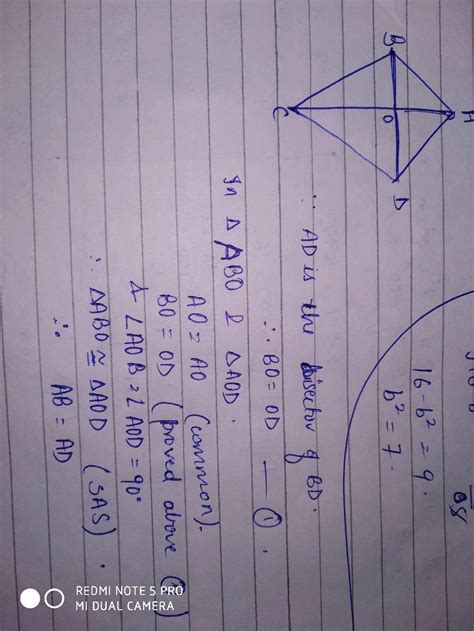 A
B
O
D
C
16 - b² = 9.
b² = 7.
∵ AD is the bisector of BD.
∴ BO = OD — ①.
In Δ ABO & ΔAOD.
AO = AO (common).
BO = OD (proved above ①)
& ∠AOB = ∠AOD = 90°
∴ ΔABO ≅ ΔAOD (SAS).
∴ AB = AD
REDMI NOTE 5 PRO
MI DUAL CAMERA